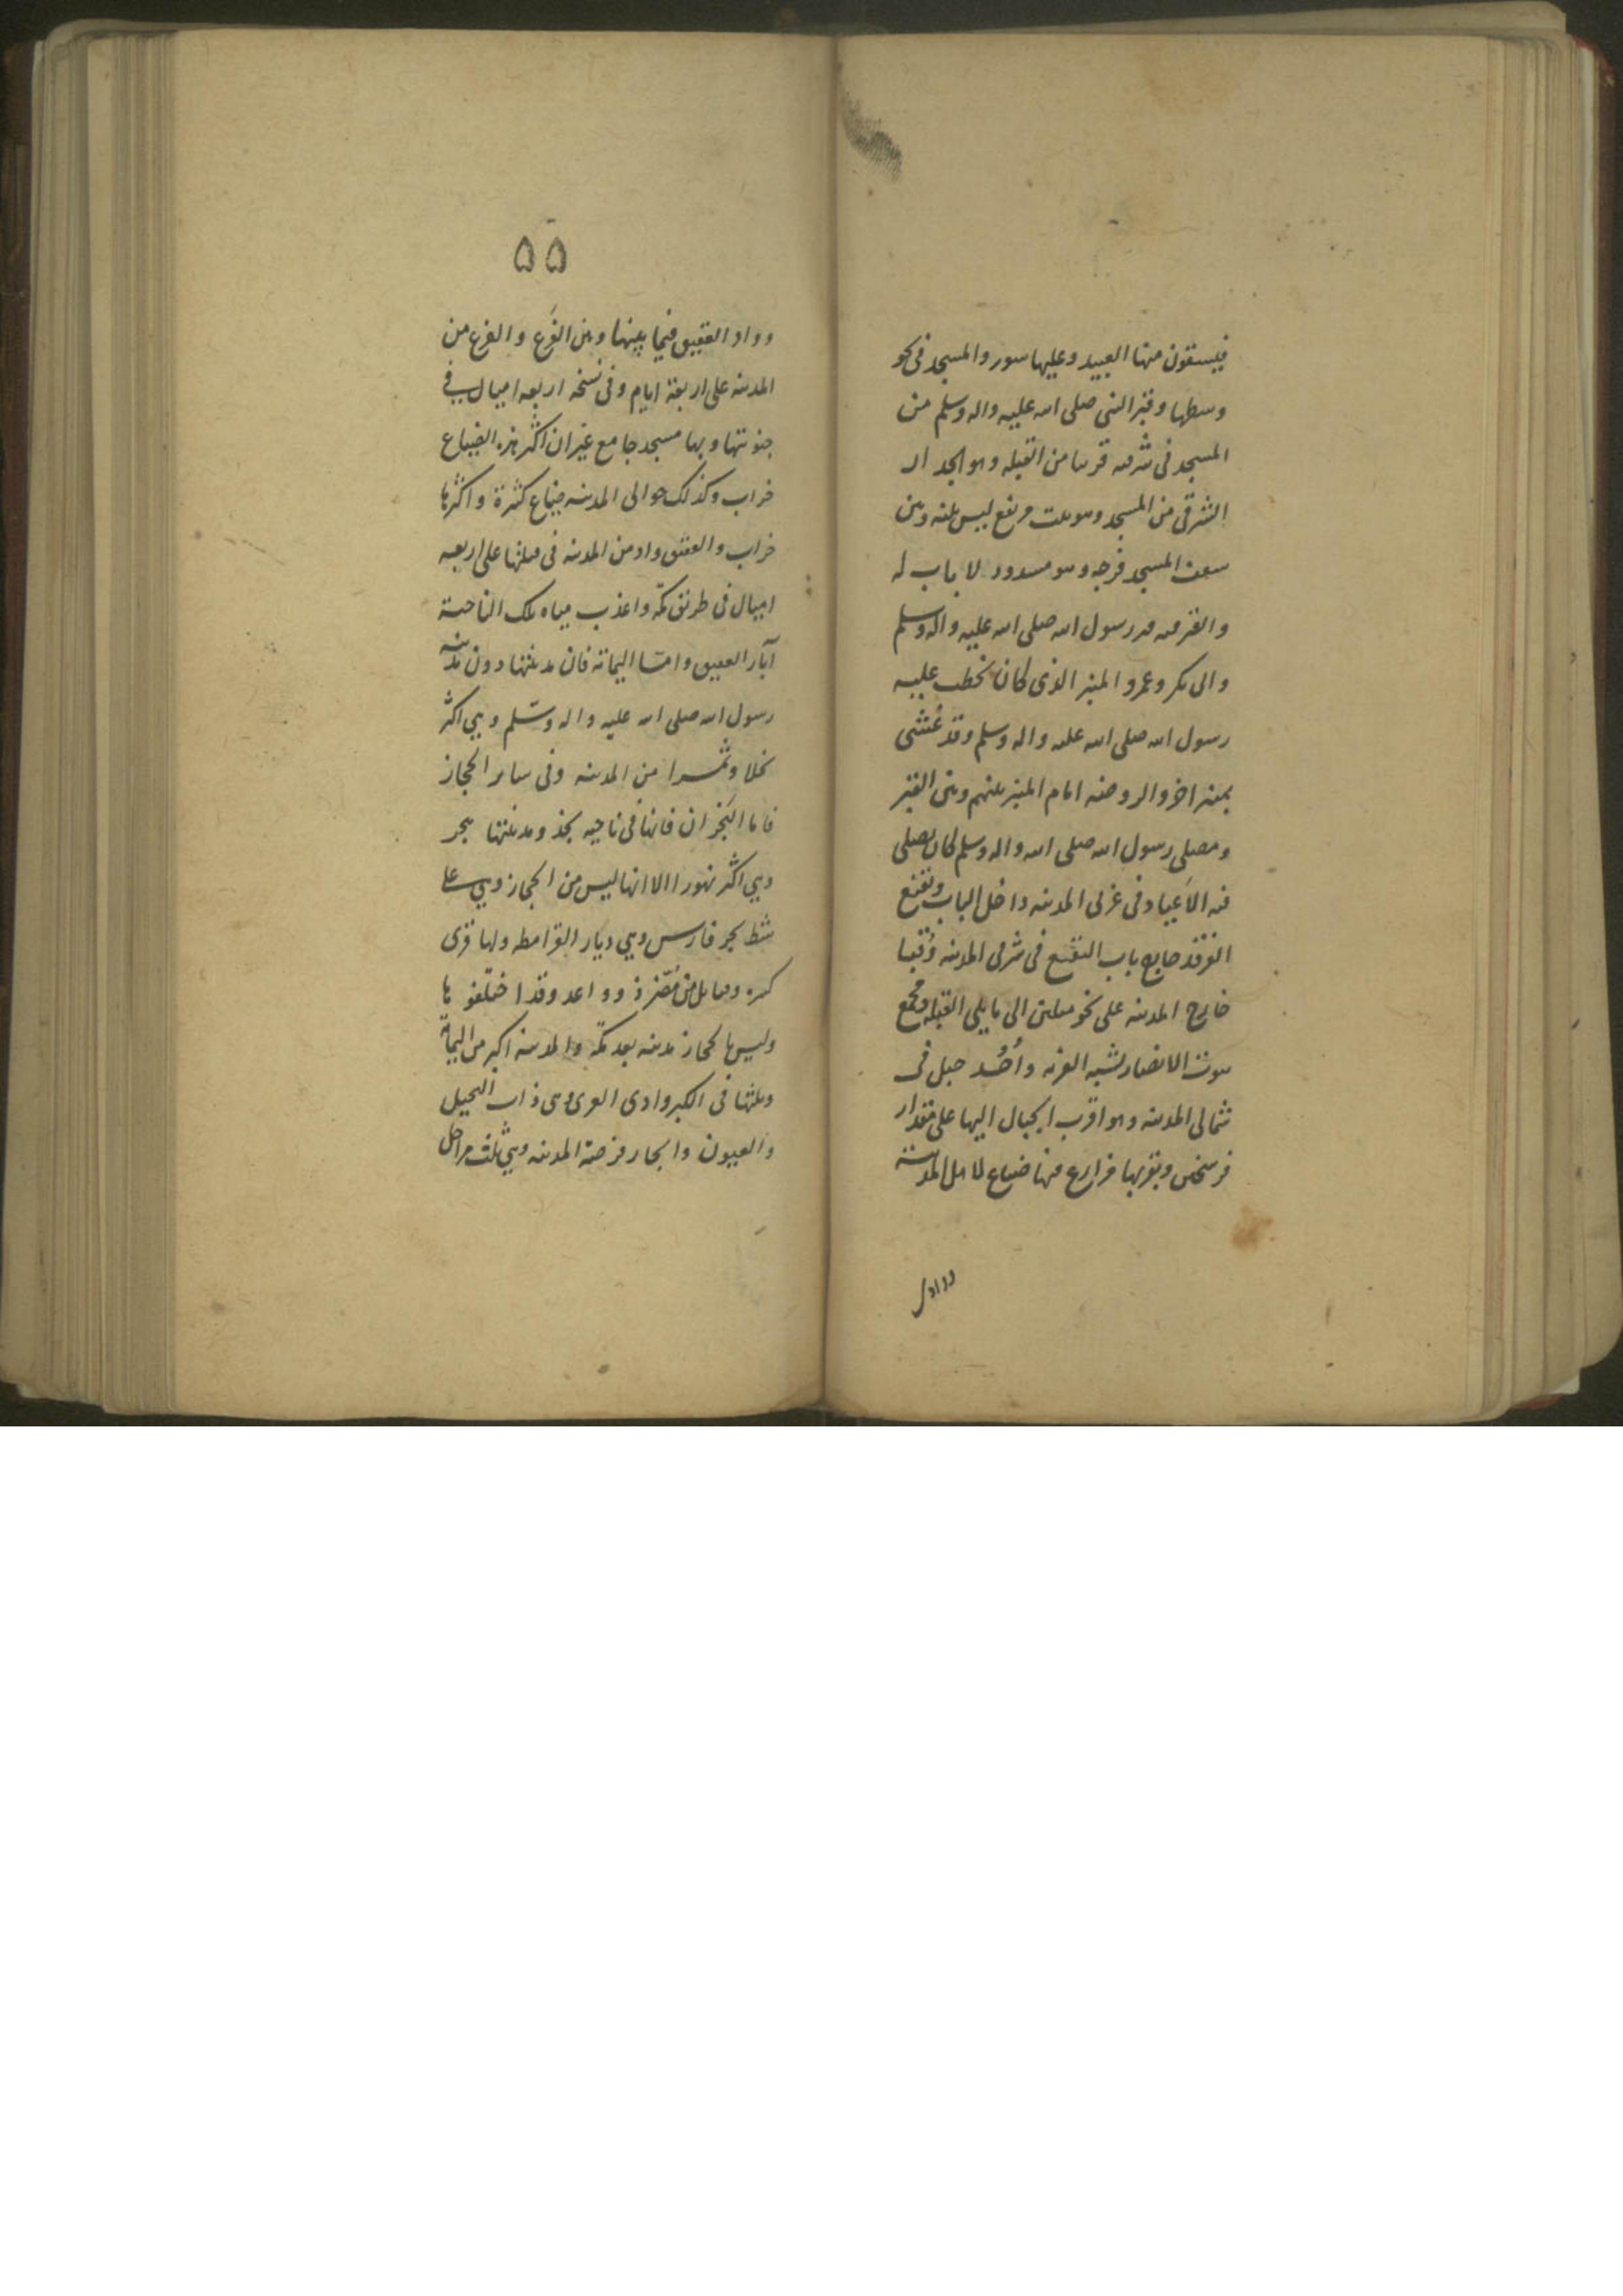 فيستقون منها العبيد وعليها سور والمسجد فى نحو
وسطها وقبر النبى صلى الله عليه واله وسلم من
المسجد فى شرقيه قريبا من القبله وهو الجدار
الشرقى من المسجد وهو بيت مرتفع ليس بينه وبين
سقف المسجد فرجه وهو مسدود لا باب له
والقبر فيه قبر رسول الله صلى الله عليه واله وسلم
وابى بكر وعمر و المنبر الذى كان يخطب عليه
رسول الله صلى الله عليه واله وسلم وقد غُشى
بمنبر اخر والروضه امام المنبر بينهم وبين القبر
ومصلى رسول الله صلى الله واله وسلم كان يصلى
فيه الاَعياد فى غربى المدينه داخل الباب وبقيع
الغرقد خارج باب البقيع فى شرقى المدينه وقُبا
خارج المدينه على نحو ميلين الى ما يلى القبله ومجمع
بيوت الانصار يشبه القريه واُحُد جبل فى
شمالى المدينه وهو اقرب الجبال اليها على مقدار
فرسخين وبقربها مزارع فيها ضياع لاهل المدينة
ووادل
۵۵
وواد العقيق فيما بينها وبين الفَرع و الفرع من
المدينه على اربعة ايام وفى نسخه اربعه اميال فى
جنوبيها وبها مسجد جامع غير ان اكثر هذه الضياع
خراب وكذلك حوالى المدينه ضياع كثيرة واكثرها
خراب والعقيق واد من المدينه فى قبلتها على اربعه
اميال فى طريق مكه واعذب مياه تلك الناحية
آبار العقيق وامّا اليمامة فان مدينتها دون مدينة
رسول الله صلى الله عليه واله وسّلم وهى اكثر
نخلا وثمرا من المدينه وفى ساير الحجاز
فاما البَحران فانها فى ناحيه نجد ومدينتها هجر
وهى اكثر تمورا الا انها ليس من الحجاز وهى على
شط بحر فارس وهى ديار القرامطه ولها قرى
كثيره وقبايل من مُضر ذوو اعد وقد اختلفو ها
وليس بالحجاز مدينه بعد مكّه والمدينه اكبر من اليمامة
ويليها فى الكبر وادى القرى وهى ذات النخيل
والعيون والجار فرضة المدينه وهى ثلث مراحل